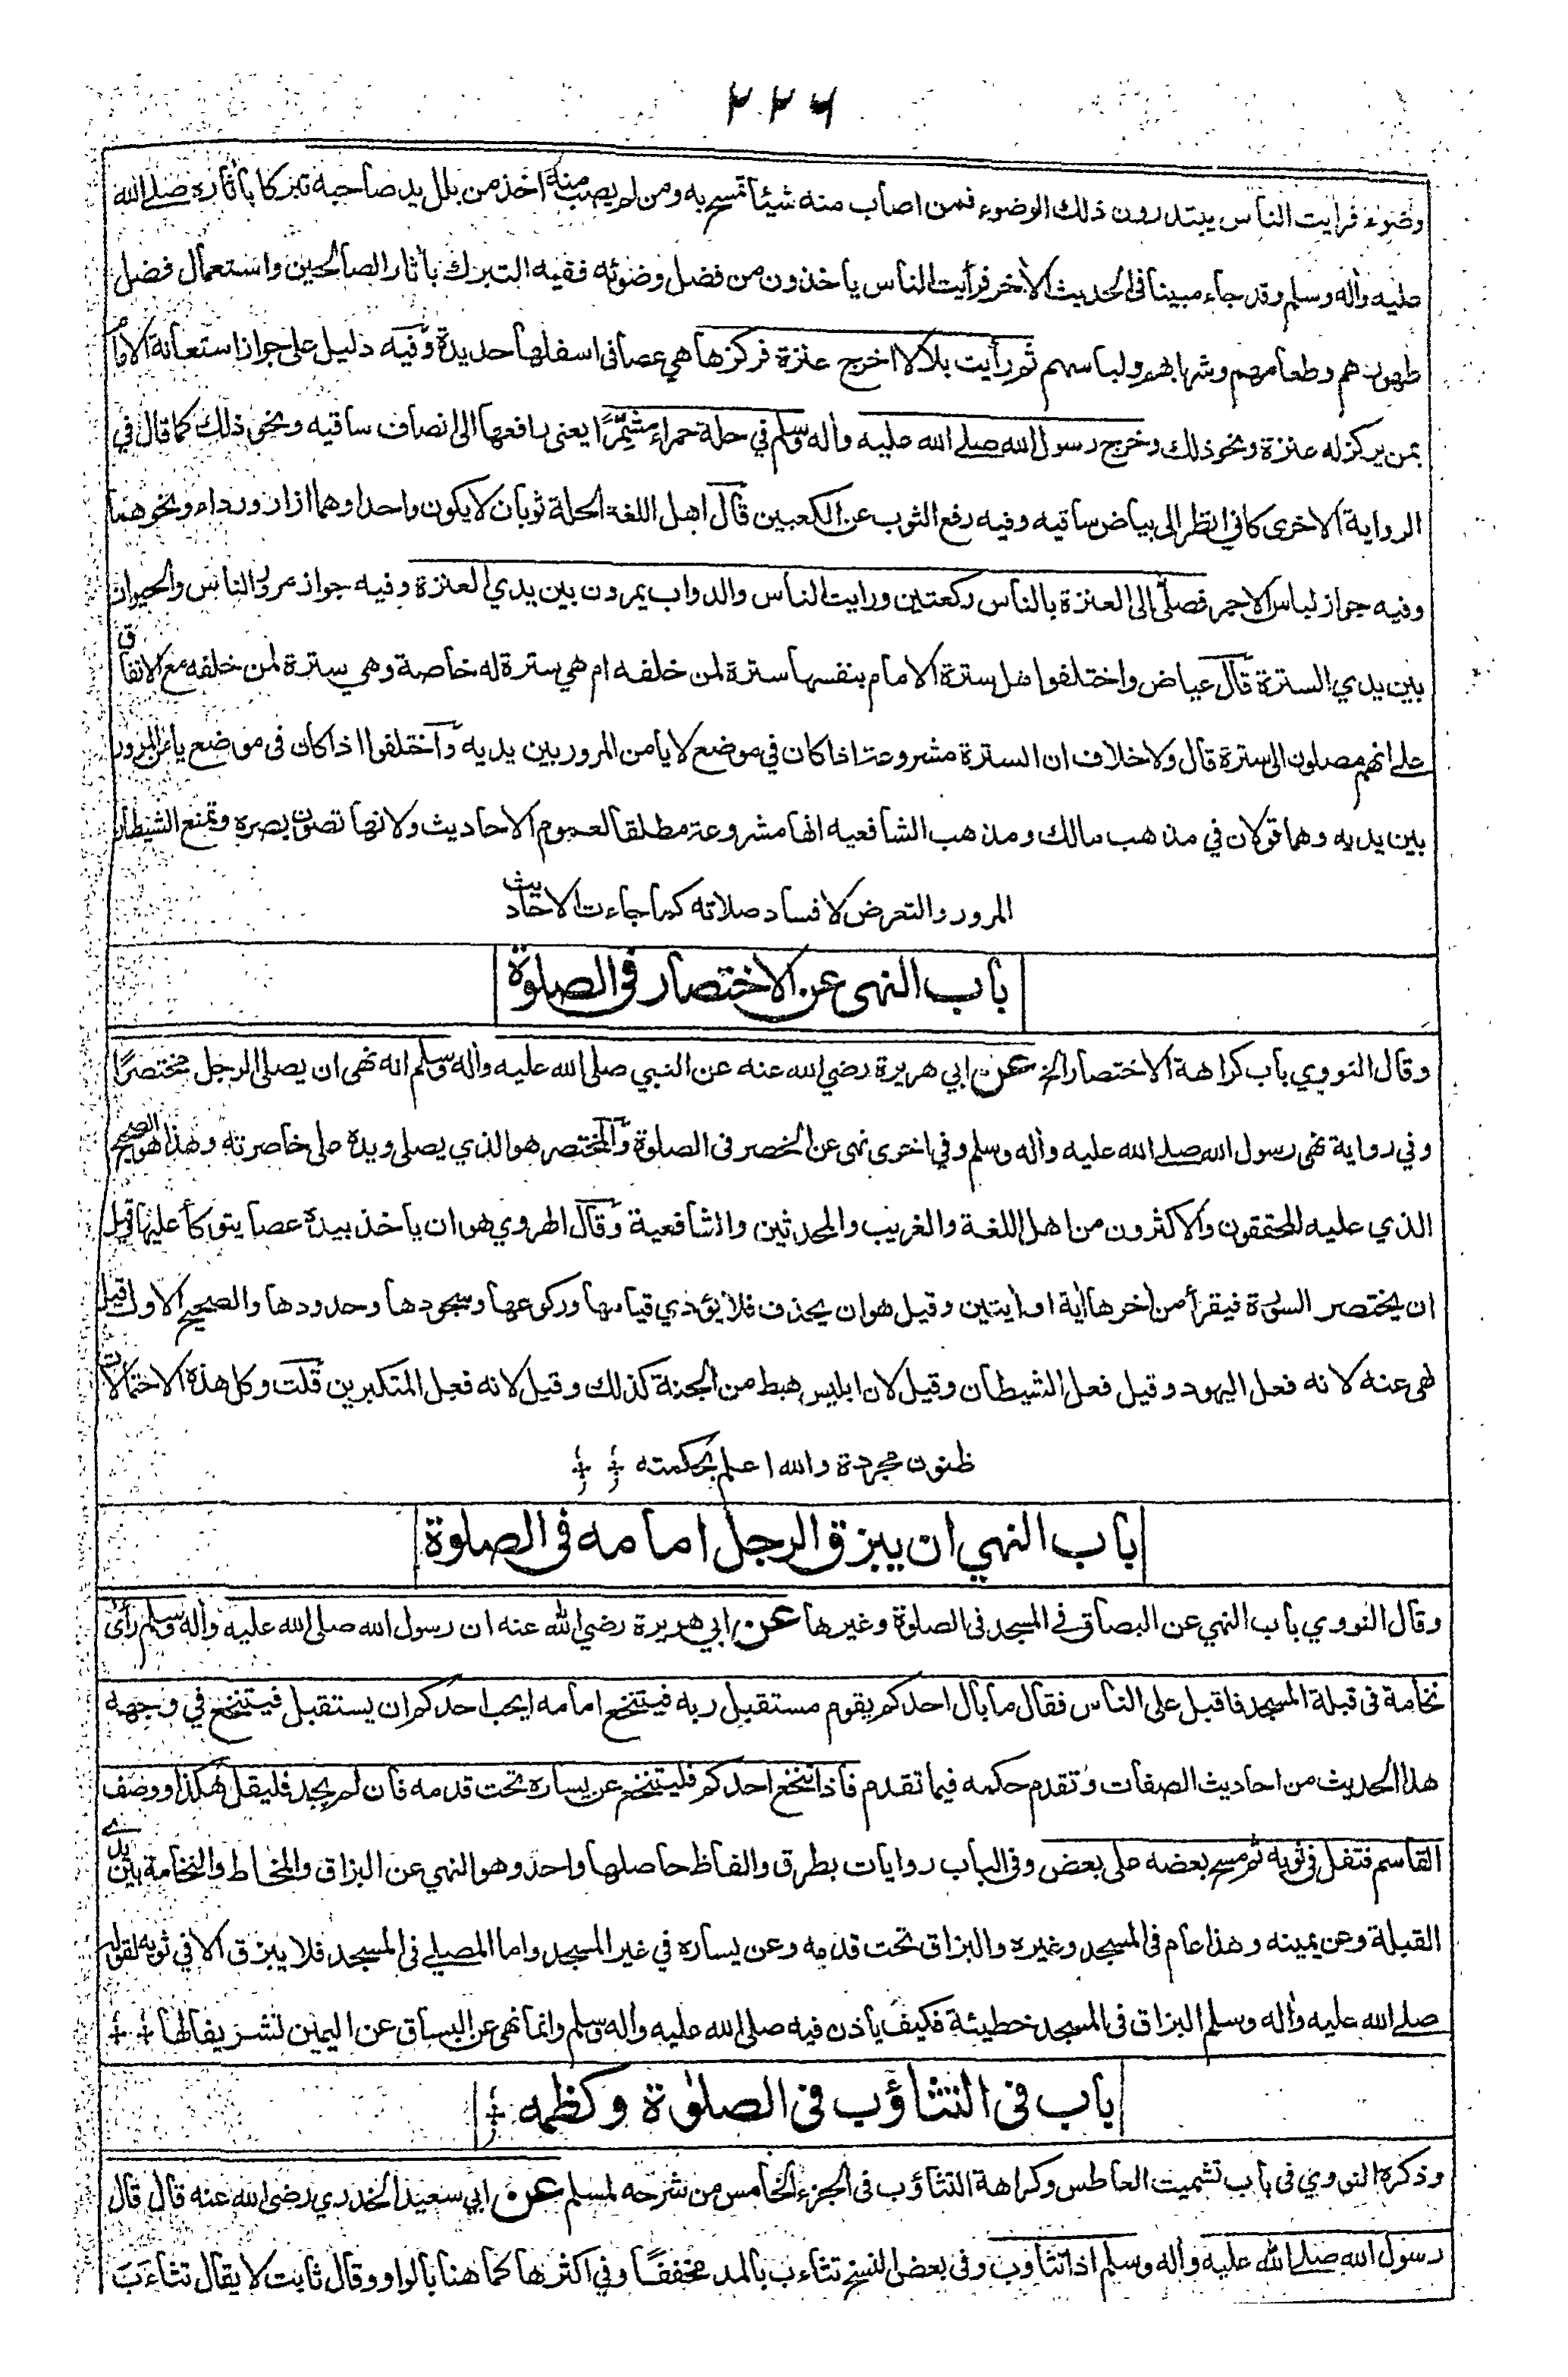 ٢٢٦
وضوء فرايت الناس يبتدرون ذلك الوضوء فمن اصاب منه شيئا تمسح به ومن لم يصب منه اخذ من بلل يد صاحبه تبركا بأثاره صلے الله
عليه وأله وسلم وقد جاء مبينا فى الحديث الأخر فرأيت الناس يأخذون من فضل وضوئه ففيه التبرك بأثار الصالحين واستعمال فضل
طهورهم وطعامهم وشرابهم ولباسهم ثم رأيت بلالا اخرج عنزة فركزها هي عصا فى اسفلها حديدة وفيه دليل على جواز استعانة الامام
بمن يركز له عنزة ونحو ذلك وخرج رسول الله صلے الله عليه وأله وسلم في حلة حمراء مشمّرًا يعنى رافعها الى انصاف ساقيه ونحو ذلك كما قال في
الرواية الاخرى كاني انظر الى بياض ساقيه وفيه رفع الثوب عن الكعبين قال اهل اللغة الحلة ثوبان لا يكون واحدا وهما ازار ورداء ونحوهما
وفيه جواز لباس الاحمر فصلّى الى العنزة بالناس ركعتين ورايت الناس والدواب يمرون بين يدي العنزة وفيه جواز مرور الناس والحيوان
بين يدي السترة قال عياض واختلفوا هل سترة الامام بنفسها سترة لمن خلفه ام هي سترة له خاصة وهي سترة لمن خلفه مع الاتفاق
علے انهم مصلون الى سترة قال ولا خلاف ان السترة مشروعة اذا كان في موضع لا يأمن المرور بين يديه واختلفوا اذا كان فى موضع يأمن المرور
بين يديه وهما قولان في مذهب مالك ومذهب الشافعيه انها مشروعة مطلقا لعموم الاحاديث ولانها تصون بصره وتمنع الشيطان
المرور والتعرض لافساد صلاته كما جاءت الاحاديث
باب النهى عن الاختصار فى الصلوة
وقال النووي باب كراهة الاختصار الخ عن ابي هريرة رضي الله عنه عن النبي صلى الله عليه وأله وسلم انه نهى ان يصلى الرجل مختصرًا
وفي رواية نهى رسول الله صلے الله عليه وأله وسلم وفي اخرى نهى عن الخصر فى الصلوة والمختصر هو الذي يصلى ويده على خاصرته وهذا هو الصحيح
الذي عليه المحققون والاكثرون من اهل اللغة والغريب والمحدثين والشافعية وقال الهروي هو ان يأخذ بيده عصا يتوكأ عليها وقيل
ان يختصر السورة فيقرأ من اخرها أية او ايتين وقيل هو ان يحذف فلا يؤدي قيامها وركوعها وسجودها وحدودها والصحيح الاول قيل
نهى عنه لانه فعل اليهود وقيل فعل الشيطان وقيل لان ابليس هبط من الجنة كذلك وقيل لانه فعل المتكبرين قلت وكل هذه الاحتمالات
ظنون مجردة والله اعلم بحكمته
باب النهي ان يبزق الرجل امامه فى الصلوة
وقال النووي باب النهي عن البصاق في المسجد فى الصلوة وغيرها عن ابي هريرة رضي الله عنه ان رسول الله صلى الله عليه وأله وسلم رأى
نخامة فى قبلة المسجد فاقبل على الناس فقال ما بال احدكم يقوم مستقبل ربه فيتنخع امامه ايحب احدكم ان يستقبل فيتنخع في وجهه
هذا الحديث من احاديث الصفات وتقدم حكمه فيما تقدم فاذا تنخع احدكم فليتنخع عن يساره تحت قدمه فان لم يجد فليقل هكذا ووصف
القاسم فتفل فى ثوبه ثم مسح بعضه على بعض وفى الباب روايات بطرق والفاظ حاصلها واحد وهو النهي عن البزاق والمخاط والنخامة بين يدے
القبلة وعن يمينه وهذا عام فى المسجد وغيره والبزاق تحت قدمه وعن يساره في غير المسجد واما المصلے فى المسجد فلا يبزق الا في ثوبه لقوله
صلے الله عليه وأله وسلم البزاق فى المسجد خطيئة فكيف يأذن فيه صلى الله عليه وأله وسلم وانما نهى عن البساق عن اليمين تشريفا لها
باب فى التثاؤب فى الصلوٰة وكظمه
وذكره النووي فى باب تشميت العاطس وكراهة التثاؤب فى الجزء الخامس من شرحه لمسلم عن ابي سعيد الخدري رضى الله عنه قال قال
رسول الله صلے الله عليه وأله وسلم اذا تثاوب وفى بعض النسخ تثاءب بالمد مخففًا وفي اكثرها كما هنا بالواو وقال ثابت لا يقال تثاءَبَ